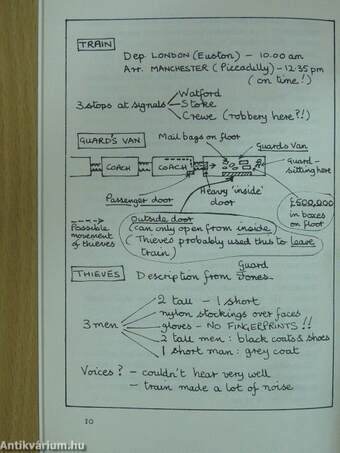 TRAIN
Dep LONDON (Euston) - 10.00 am
Arr. MANCHESTER (Piccadilly) - 12.35 pm
(on time!)
3 stops at signals
Watford
Stoke
Crewe (robbery here?!)
GUARD'S VAN
Mail bags on floor
Guards Van
COACH
COACH
Guard - sitting here
Passenger door
Heavy 'inside' door
£500,000 in boxes on floor
Possible movement of thieves
Outside door
(can only open from inside)
(Thieves probably used this to leave train)
THIEVES
Description from Guard Jones
3 men
2 tall - 1 short
nylon stockings over faces
gloves - NO FINGERPRINTS!!
2 tall men: black coats & shoes
1 short man: grey coat
Voices? - couldn't hear very well
- train made a lot of noise
10
Antikvárium.hu